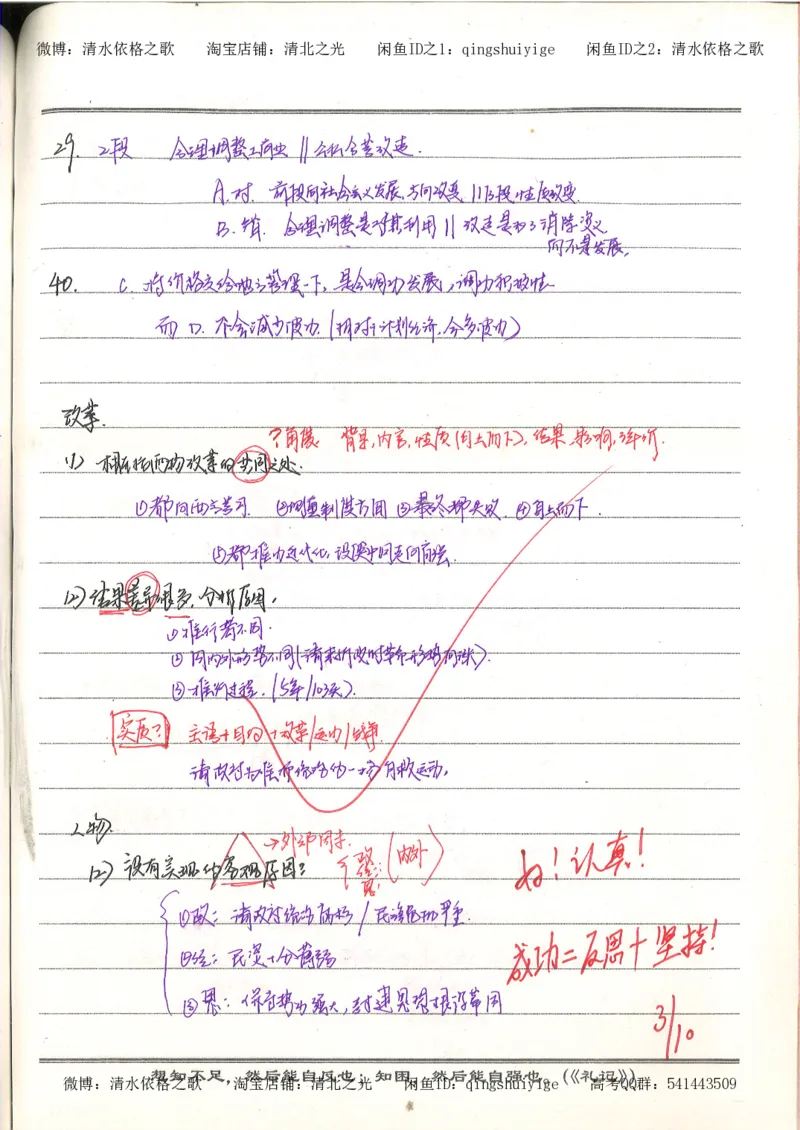 微博：清水依格之歌 淘宝店铺：清北之光 闲鱼ID之1：qingshuiyige 闲鱼ID之2：清水依格之歌
29. 2段 合理调整工商业 // 公私合营改造.
A.对. 前段向社会主义发展,方向改变 // 后段性质改变.
B.错. 合理调整是对其利用 // 改造是为了消除资义
而不是发展,
40. C.将价格交给地方管理一下,是会调动发展,调动积极性
而 D.不会减少波动.(相对计划经济,会多波动)
改革.
?角度 背景,内容,性质(自上而下),结果,影响,评价.
(1) 共同之处.
①都向西方学习. ②侧重制度方面 ③最终都失败. ④自上而下.
⑤都推动近代化,
(2)结果差异很多,分析原因.
①推行者不同.
②国内外形势不同(清末新政时革命形势高涨).
③推行过程.(5年/103天).
实质? 主语+目的+改革/运动/战争.
清政府为维护统治的一场自救运动.
人物.
→外部因素.
(2) 没有实现的客观原因? 政 经 思 (内外)
①政：清政府统治腐朽/民族危机严重.
②经：民资十分薄弱
③思：保守势力强大,封建思想根深蒂固
好!认真!
成功=反思+坚持!
3/10
知不足，然后能自反也；知困，然后能自强也。(《礼记》)
微博：清水依格之歌 淘宝店铺：清北之光 闲鱼ID：qingshuiyige 高考QQ群：541443509